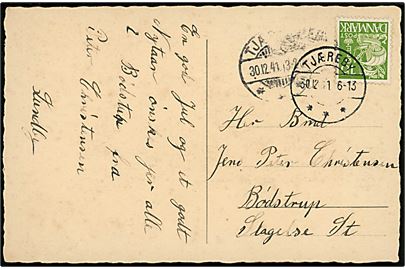 En god Jul og et godt
Nytaar ønskes for alle
i Bødstup fra
Peter Christensen
Lundby
POST
DANMARK
TJÆREBY
30.12.41 6-13
TJÆREBY
30.12.41
Hr. Bmd
Jens Peter Christensen
Bødstrup
Slagelse St